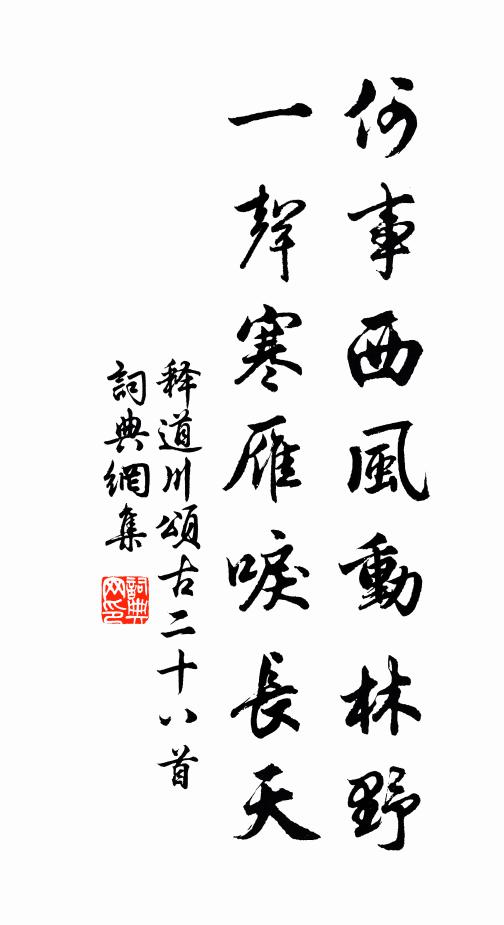 何事西風動林野
一聲寒雁唳長天
释道川頌古二十八首
詞典網集
詞典網印